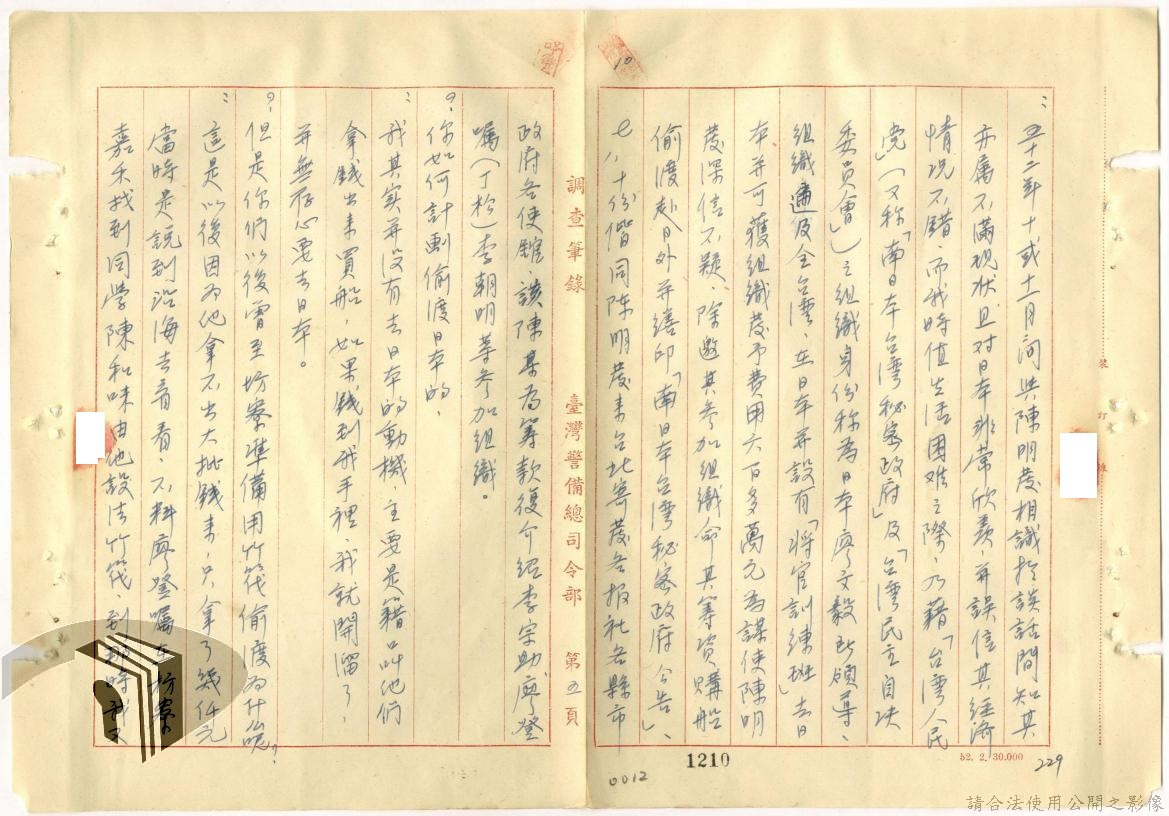 ：五十二年十或十一月間與陳明發相識於談話間知其
亦属不滿現状、且对日本非常欣羨、并誤信其經濟
情况不錯、而我時值生活困难之際、乃藉「台湾人民
党」(又称「南日本台湾秘密政府」及「台湾民主自决
委員會」)之組織身份称為日本廖文毅所領導、
組織遍及全台湾、在日本并設有「将官訓練班」去日
本并可獲組織發予費用六百多萬元為謀使陳明
發深信不疑、除邀其参加組織命其籌資購船
偷渡赴日外并繕印「南日本台湾秘密政府公告」、
七、八十份偕同陈明發来台北寄發各报社各縣市
調查筆錄 臺灣警備總司令部 第五頁
政府各使舘、該陳某為籌款復介紹李宗助、廖登
嘱(丁松)李朝明等参加組織。
？你如何計劃偷渡日本的、
：我其实并没有去日本的動機主要是籍口叫他們
拿錢出来買船、如果錢到我手裡、我就開溜了、
并無存心要去日本。
？但是你們以後曾至坊寮準備用竹筏偷渡為什麼？
：這是以後因為他拿不出大批錢来、只拿了幾仟元
當時是説到沿海去看看、不料廖登嘱在坊寮
嘉禾找到同学陳和味由他設法竹筏、到那時我又
10
裝
訂
線
1210
0012
52. 2. 30.000
229
請合法使用公開之影像